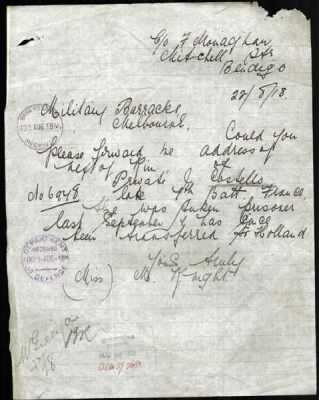 C/o F Monaghan
Mitchell St
Bendigo
22/8/18.
Military Barracks
Melbourne.
Could you
Please forward me address of
next of kin of
Private J Costello
No 6048 late 4th Batt. France.
He was taken prisoner
last September & has since
been transferred to Holland
Yours truly
(Miss) M Knight
DEPARTMENT
RECEIVED
OF DEFENCE